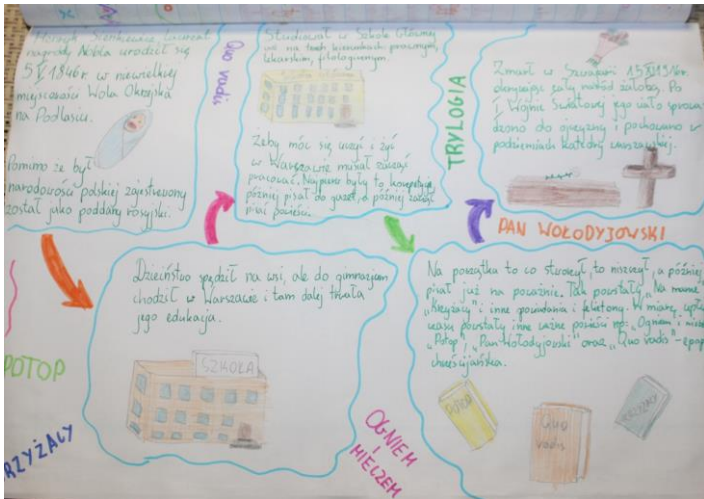 Henryk Sienkiewicz laureat
nagrody Nobla urodził się
5 V 1846r w niewielkiej
miejscowości Wola Okrzejska
na Podlasiu.
Pomimo że był
narodowości polskiej zajestrowany
został jako poddany rosyjski.
Quo vadis
Studiował w Szkole Głównej
na trzech kierunkach prawnym,
lekarskim, filologicznym.
Żeby móc się uczyć i żyć
w Warszawie musiał zacząć
pracować. Najpierw były to korepetycje
później pisał do gazet, a później zaczął
pisać powieści.
TRYLOGIA
Zmarł w Szwajcarii 15 XI 1916r.
okrywając cały naród żałobą. Po
I Wojnie Światowej jego ciało sprowa-
dzono do ojczyzny i pochowano w
podziemiach katedry warszawskiej.
PAN WOŁODYJOWSKI
Dzieciństwo spędził na wsi, ale do gimnazjum
chodził w Warszawie i tam dalej trwała
jego edukacja.
SZKOŁA
Na początku to co stworzył, to niszczył, a później
pisał już na poważnie. Tak powstały „Na marne"
„Krzyżacy" i inne opowiadania i felietony. W miarę
czasu powstały inne ważne powieści np: „Ogniem i
„Potop", „Pan Wołodyjowski" oraz „Quo vadis" -
chrześcijańska.
POTOP
Quo
vadis
KRZYŻACY
POTOP
RZYŻACY
OGNIEM
I
MIECZEM